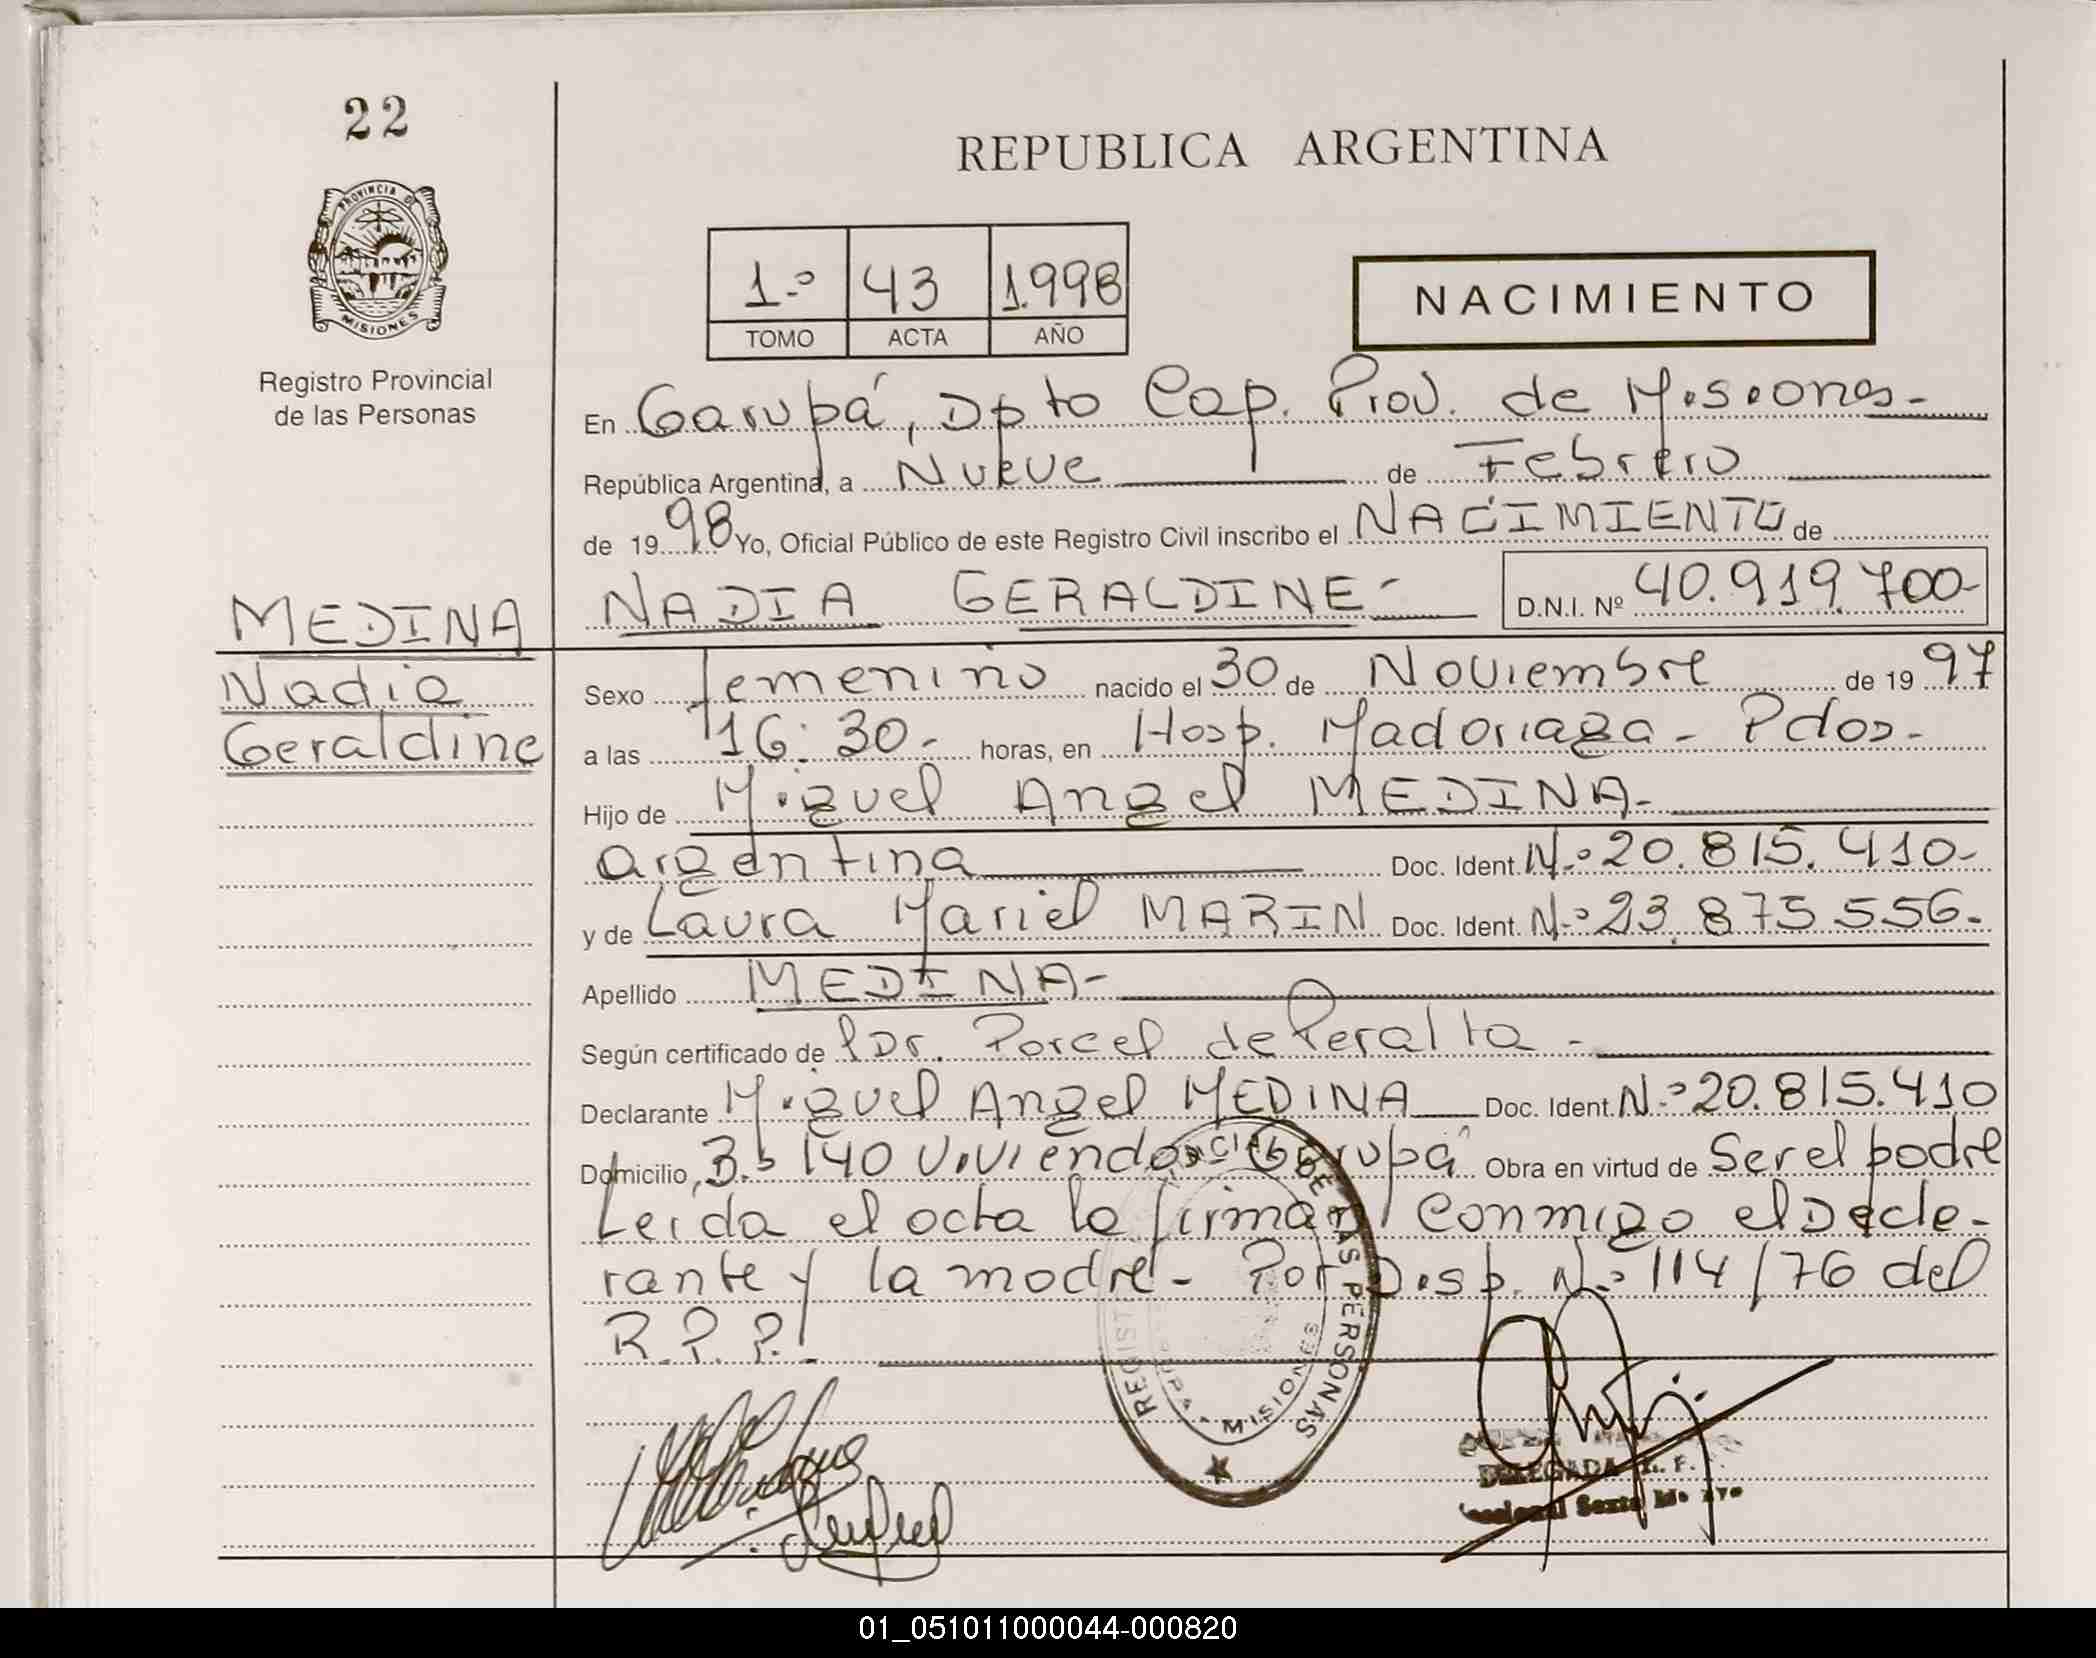 22
PROVINCIA DE
MISIONES
Registro Provincial
de las Personas
REPUBLICA ARGENTINA
1.º 43 1.998
TOMO ACTA AÑO
NACIMIENTO
En Garupá, Dpto Cap. Prov. de Misiones.-
República Argentina, a Nueve de Febrero
de 1998 Yo, Oficial Público de este Registro Civil inscribo el NACIMIENTO de
MEDINA
Nadia
Geraldine
NADIA GERALDINE- D.N.I. Nº 40.919.700-
Sexo femenino nacido el 30 de Noviembre de 1997
a las 16:30.- horas, en Hosp. Madariaga - Pdas.-
Hijo de Miguel Angel MEDINA.-
argentina Doc. Ident. N.º 20.815.410-
y de Laura Mariel MARIN Doc. Ident. N.º 23.875.556.-
Apellido MEDINA-
Según certificado de Dr. Porcel de Peralta -
Declarante Miguel Angel MEDINA Doc. Ident. N.º 20.815.410
Domicilio, B.º 140 Viviendas Garupá Obra en virtud de Ser el padre
Leida el acta la firman conmigo el Decla-
rante y la madre - Por Disp. N.º 114/76 del
R.P.P.
DE LAS PERSONAS
MISIONES
DELEGADA
01_051011000044-000820